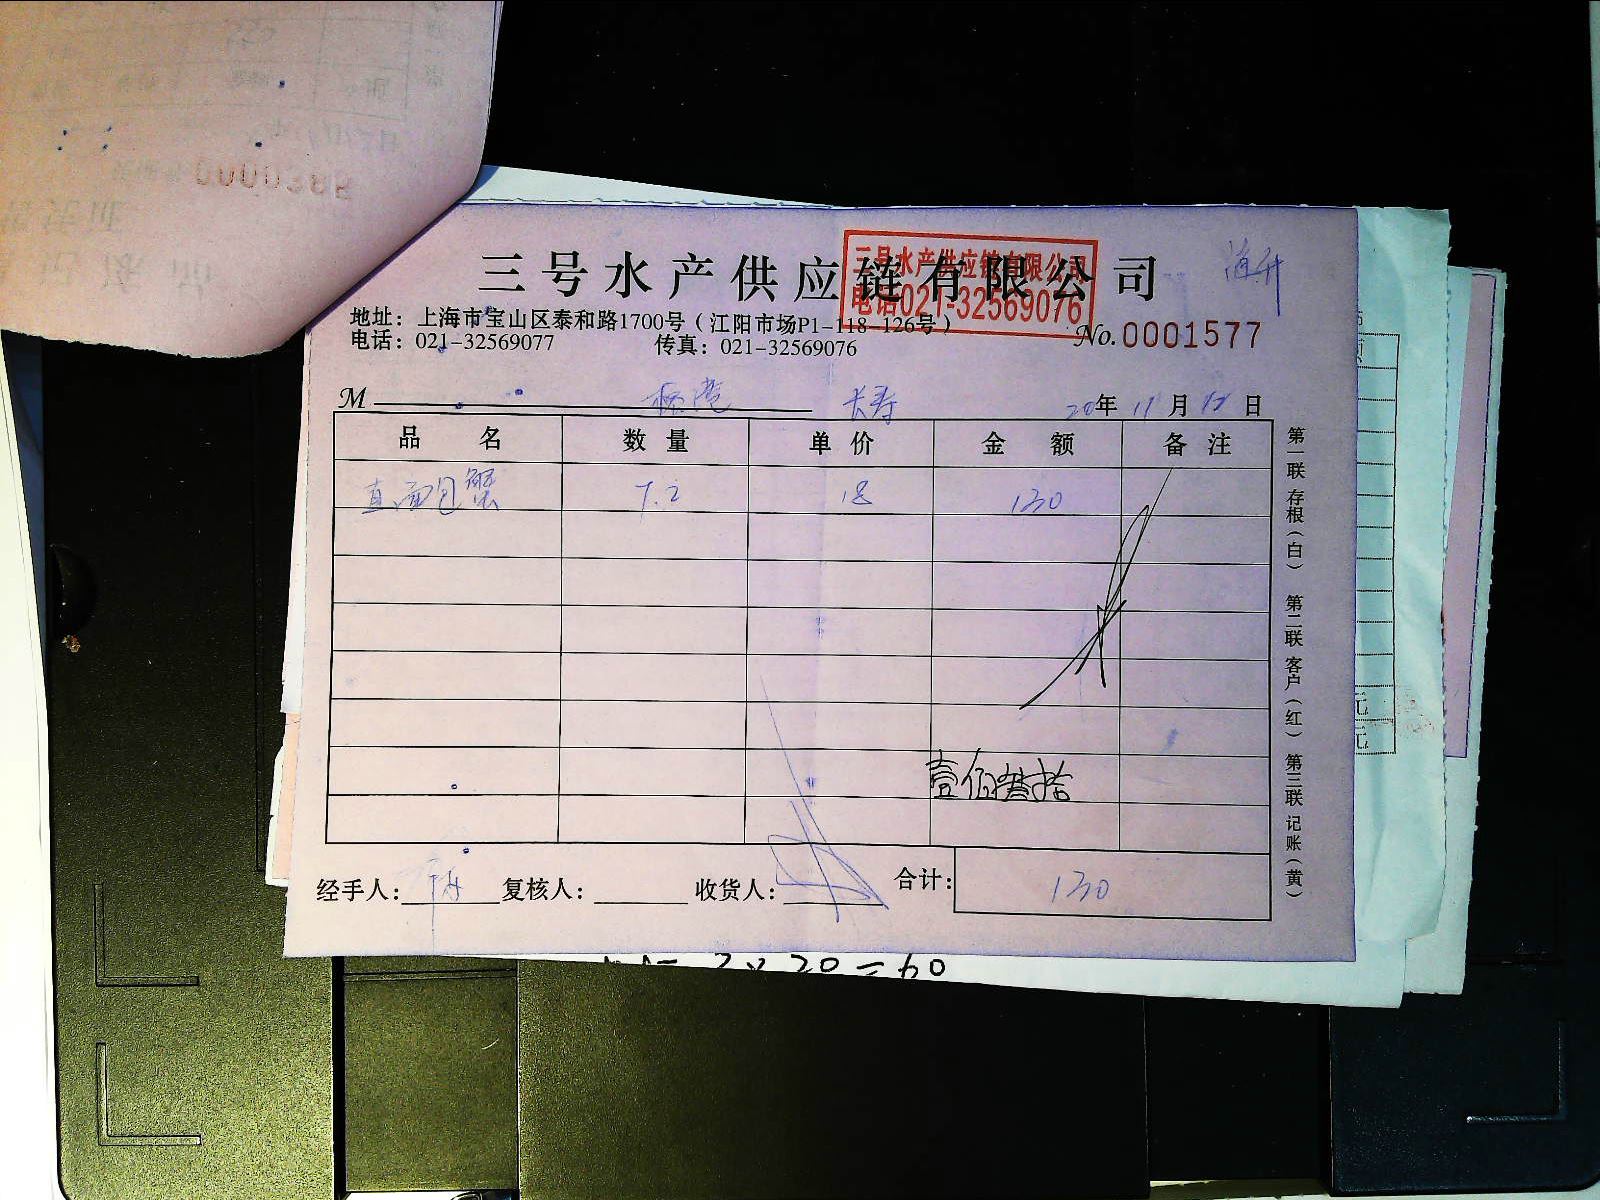 三号水产供应链有限公司
三号水产供应链有限公司
电话021-32569076
地址：上海市宝山区泰和路1700号（江阳市场P1-118-126号）
电话：021-32569077 传真：021-32569076
No.0001577
M 长寿 20年11月12日
品名 数量 单价 金额 备注
直面包蟹 7.2 18 130
壹佰叁拾
经手人： 复核人： 收货人： 合计：130
第一联 存根（白） 第二联 客户（红） 第三联 记账（黄）
2×30=60